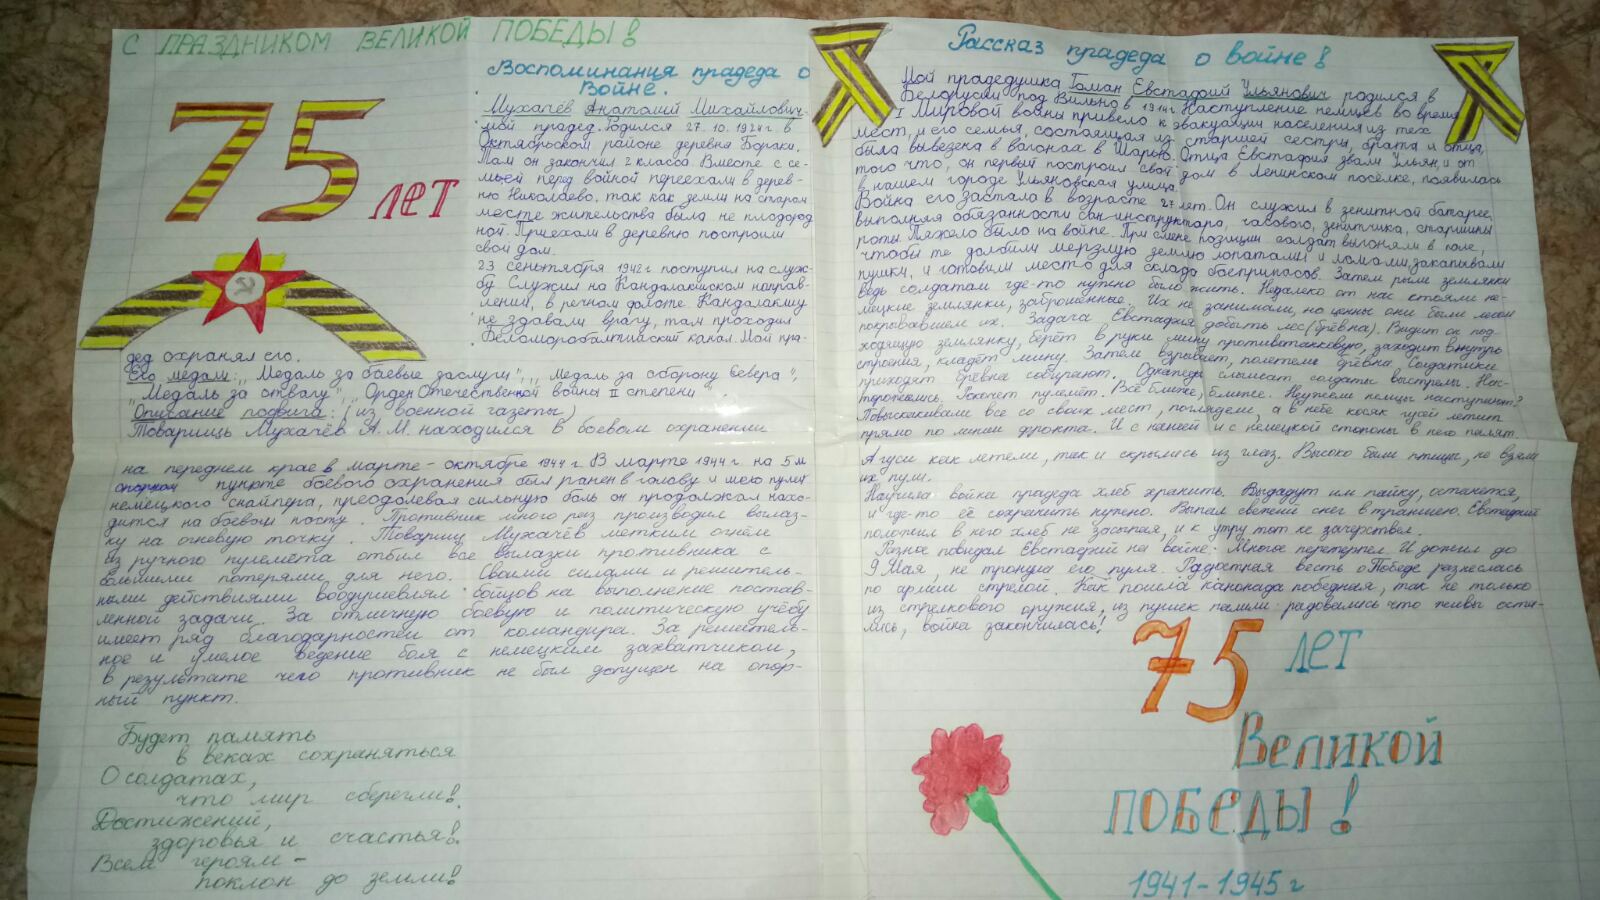 С ПРАЗДНИКОМ ВЕЛИКОЙ ПОБЕДЫ!
75 ЛЕТ
Воспоминания прадеда о
Войне.
Мухачёв Анатолий Михайлович-
мой прадед. Родился 27.10.1924 г. в
Октябрьском районе деревня Бораки.
Там он закончил 2 класса. Вместе с се-
мьёй перед войной переехали в дерев-
ню Николаево, так как земли на старом
месте жительства была не плодород
ной. Приехали в деревню построили
свой дом.
23 сентября 1942 г поступил на служ-
бу. Служил на Кандалакшском направ-
лении, в речном флоте. Кандалакшу
не здавали врагу, там проходил
Беломоробалтийский канал. Мой пра-
дед охранял его.
Его медали: „Медаль за боевые заслуги", „Медаль за оборону Севера",
„Медаль за отвагу", „Орден Отечественной войны II степени
Описание подвига: (из военной газеты)
Товарищь Мухачёв А.М. находился в боевом охранении
на переднем крае в марте - октябре 1944 г. В марте 1944 г. на 5 м
опорном пункте боевого охранения был ранен в голову и шею пулей
немецкого снайпера, преодолевая сильную боль он продолжал нахо-
дится на боевом посту. Противник много раз производил вылаз-
ку на огневую точку. Товарищ Мухачёв метким огнём
из ручного пулемёта отбил все вылазки противника с
большими потерями для него. Своими силами и решитель-
ными действиями воодушевлял бойцов на выполнение постав-
ленной задачи. За отличную боевую и политическую учёбу
имеет ряд благодарностей от командира. За решитель-
ное и умелое ведение боя с немецким захватчиком,
в результате чего противник не был допущен на опор-
ный пункт.
Будет память
в веках сохраняться
О солдатах,
что мир сберегли!
Достижений,
здоровья и счастья!
Всем героям -
поклон до земли!
Рассказ прадеда о войне!
Мой прадедушка Гоман Евстафий Ульянович родился в
Белоруссии под Вильно в 1914 г. Наступление немцев во время
I Мировой войны привело к эвакуации населения из тех
мест, и его семья, состоящая из старшей сестры, брата и отца,
была вывезена в вагонах в Шарью. Отца Евстафия звали Ульян, и от
того что, он первый построил свой дом в Ленинском поселке, появилась
в нашем городе Ульяновская улица.
Война его застала в возрасте 27 лет. Он служил в зенитной батарее,
выполняя обязанности сан-инструктора, часового, зенитчика, старшины
роты. Тяжело было на войне. При смене позиции солдат выгоняли в поле,
чтобы те долбили мерзлую землю лопатами и ломами, закапывали
пушки, и готовили место для склада боеприпасов. Затем рыли землянки
Ведь солдатам где-то нужно было жить. Недалеко от нас стояли не-
мецкие землянки, заброшенные. Их не занимали, но ценны они были лесом
покрывавшем их. Задача Евстафия добыть лес (брёвна). Видит он под-
ходящую землянку, берёт в руки мину противотанковую, заходит внутрь
строения, кладёт мину. Затем взрывает, полетели брёвна. Солдатики
приходят брёвна собирают. Однажды слышат солдаты выстрелы. Нас-
торожились. Рокочет пулемёт. Всё ближе, ближе. Неужели немцы наступают?
Повыскакивали все со своих мест, поглядели, а в небе косяк гусей летит
прямо по линии фронта. И с нашей и с немецкой стороны в него палят.
А гуси как летели, так и скрылись из глаз. Высоко были птицы, не взяли
их пули.
Научила война прадеда хлеб хранить. Выдадут им пайку, останется,
и где-то её сохранить нужно. Выпал свежий снег в траншею. Евстафий
положил в него хлеб не засыпая, и к утру тот не зачерствел.
Разное повидал Евстафий на войне. Многое перетерпел. И дожил до
9 Мая, не тронула его пуля. Радостная весть о Победе разнеслась
по армии стрелой. Как пошла канонада победная, так не только
из стрелкового оружия, из пушек палили: радовались что живы оста-
лись, война закончилась!
75 ЛЕТ
Великой
ПОБЕДЫ!
1941-1945 г